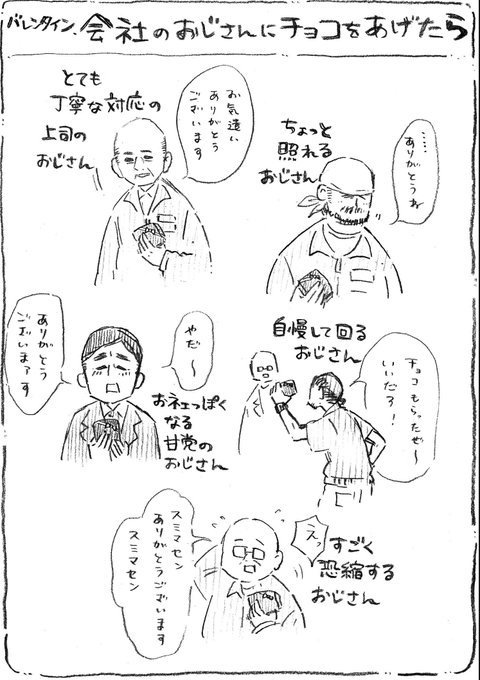 バレンタイン、会社のおじさんにチョコをあげたら
とても
丁寧な対応の
上司の
おじさん
お気遣い
ありがとう
ございます
ちょっと
照れる
おじさん
……
ありがとうね
ありがとう
ございまァす
やだ〜
おネェっぽく
なる
甘党の
おじさん
自慢して回る
おじさん
チョコもらったぜ〜
いいだろ！
えっ
すごく
恐縮する
おじさん
スミマセン
ありがとうございます
スミマセン